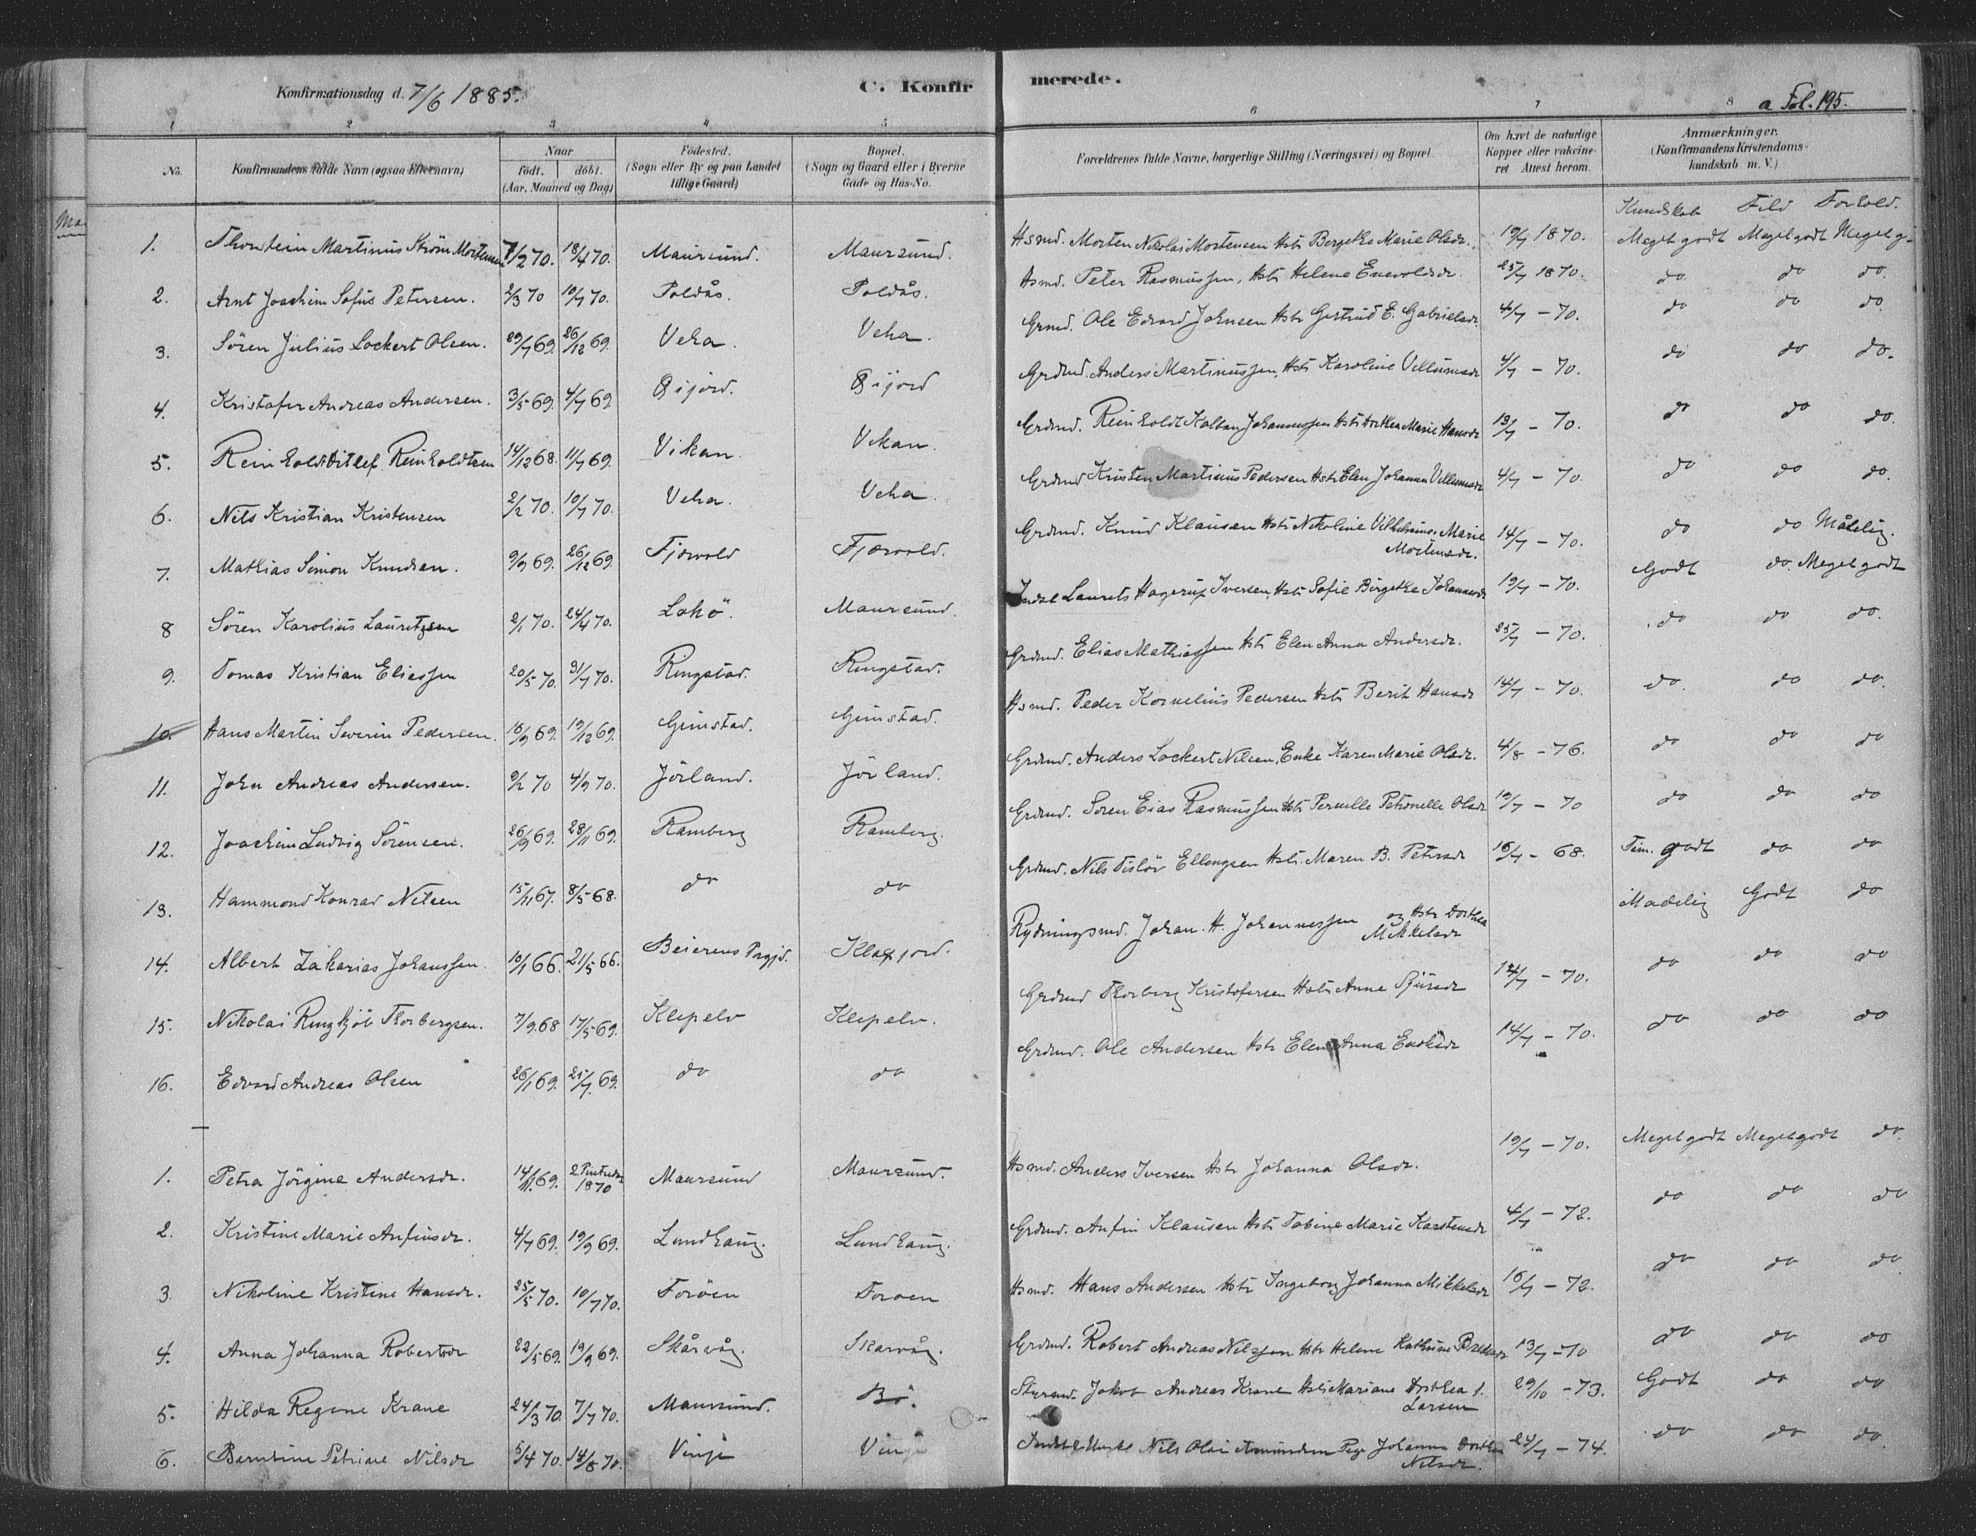 Konfirmationsdag d. 7/6 1885. C. Konfirmerede. a Fol. 195.
1 2 3 4 5 6 7 8
No. Konfirmandens fulde Navn (ogsaa Efternavn) Naar født. døbt. (Aar, Maaned og Dag) Fødested. (Sogn eller By og paa Landet tillige Gaard) Bopæl. (Sogn og Gaard eller i Byerne Gade og Hus-No. Forældrenes fulde Navne, borgerlige Stilling (Næringsvei) og Bopæl Om havt de naturlige Kopper eller vakcineret Attest herom. Anmærkninger. (Konfirmandens Kristendomskundskab m. V.)
Kundskab Flid Forhold.
1. Thorstein Martinus Strøm Mortensen 7/2 70. 18/4 70. Maursund. Maursund. Hsmd. Morten Nikolai Mortensen Hstr Bergethe Marie Olsdr. 19/7 1870. Meget godt Meget godt Meget g.
2. Arnt Joachim Sofus Petersen. 2/3 70 10/7 70. Poldås. Poldås. Hsmd. Peter Rasmussen, Hstr Helene Enevoldsdr. 25/7 1870. do do do.
3. Søren Julius Lockert Olsen. 29/7 69. 26/12 69. Veha. Veha. Grmd. Ole Edvard Johnsen Hstr Gertrud E. Gabrielsdr. 4/7 - 70. do do do.
4. Kristofer Andreas Andersen. 3/5 69. 4/7 69. Oijord. Oijord Grdmd. Anders Martinussen, Hstr Karoline Villumsdr 4/7 - 70. do do do.
5. Reinholdt Ditlef Reinholdtsen 14/12 68. 11/7 69. Vikan. Vikan. Grdmd. Reinholdt Kolban Johannessen Hstr Dorthea Marie Hansdr 13/7 - 70. do do do.
6. Nils Kristian Kristensen 2/2 70. 10/7 70. Veha. Veha. Grdmd Kristen Martinus Pedersen Hstr Elen Johanna Villumsdr 4/7 - 70. do do do.
7. Mathias Simon Knudsen. 9/9 69. 26/12 69. Fjærvold Fjærvold. Grdmd. Knud Klausen Hstr Nikoline Vilhelmine Marie Mortensdr. 14/7 - 70. do do Mådelig.
8 Søren Karolius Lauritzsen 2/1 70. 24/4 70. Lakø. Maursund. Indst Laurits Hagerup Iversen Hstr Sofie Birgethe Johannesdr 19/7 - 70. Godt do. Meget godt
9. Tomas Kristian Eliassen 20/5 70. 31/7 70. Ringstad. Ringstad. Grdmd. Elias Mathiassen Hstr Elen Anna Andersdr. 25/7 - 70. do do do.
10. Hans Martin Severin Pedersen. 18/9 69. 19/12 69. Gimstad. Gimstad. Hsmd. Peder Kornelius Pedersen Hstr Berit Hansdr 14/7 - 70. do. do do.
11. John Andreas Andersen. 9/2 70 4/9 70. Jörland. Jörland. Grdmd. Anders Lockert Nilsen, Enke Karen Marie Olsdr. 4/8 - 76. do do do
12. Joachim Ludvig Sörensen. 26/9 69. 28/11 69. Ramberg Ramberg. Grdmd. Sören Eias Rasmussen Hstr Pernelle Petronelle Olsdr 19/7 - 70 do do do
13. Hammond Konrad Nilsen 15/11 67. 8/5 68. do do Grdmd. Nils Disløv Ellingsen Hstr. Maren B. Petersdr 16/7 - 68. Tem. godt do do
14. Albert Zakarias Johanssen. 10/1 66. 21/5 66. Beierens Prgjd. Klaxjord. Rydningsmd. Johan. H. Johannessen og Hstr Dorthea Mikkelsdr Madelig Godt do
15. Nikolai Ringkjöb Thorbergsen. 7/9 68 17/5 69. Klepelv Klepelv. Grdmd Thorberg Kristofersen Hstr Anne Sjursdr 14/7 - 70. do do do
16. Edvard Andreas Olsen 26/1 69. 25/7 69. do do Grdmd. Ole Andersen Hstr Elen Anna Enoksdr 14/7 - 70. do do do
1. Petra Jörgine Andersdr. 14/11 69. 2 Pintsedag 1870 Maursund Maursund. Hsmd. Anders Iversen Hstr Johanna Olsdr. 19/7 - 70. Meget godt Meget godt do.
2. Kristine Marie Anfinsdr. 4/7 69. 19/9 69. Lundhaug. Lundhaug. Grdmd. Anfin Klausen Hstr Tobine Marie Karstensdr 4/7 - 72. do do do
3. Nikoline Kristine Hansdr. 25/5 70. 10/7 70. Foröen Foroen Hsmd. Hans Andersen Hstr Ingeborg Johanna Mikkelsdr 16/7 - 72. do do do.
4. Anna Johanna Robertsdr 22/5 69. 19/9 69. Skårvåg. Skarvåg. Grdmd. Robert Andreas Nilssen Hstr Helene Kathrine 13/7 - 70 do do do
5. Hilda Regine Krane 24/3 70. 7/7 70. Maursund. Bö. Styrmd. Jakob Andreas Krane Hstr Mariane Dorthea f. Larsen 29/10 - 73. Godt do do
6. Berntine Petrine Nilsdr 5/4 70. 14/8 70. Vinje Vinje Nils Olai Amundsen Pige Johanna Dorthea Nilsdr. 24/7 - 74. do do do.